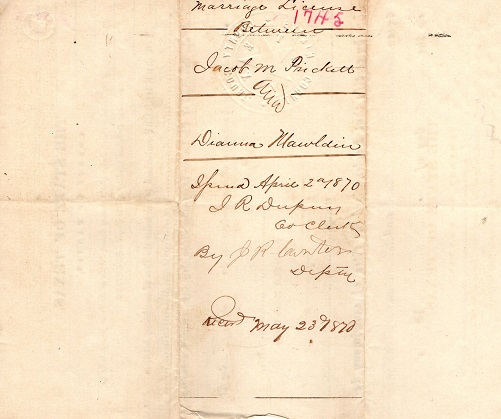 Marriage License
1745
Between
Jacob M Prickett
And
Dianna Mawldin
Issued April 2d 1870
J R Dupuy
Co Clerk
By J. R.
Depty
Recd May 23d 1870